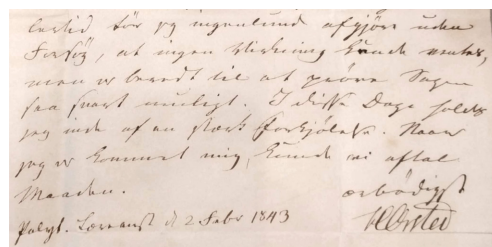 lertid, tør jeg ingenlunde afgjøre uden
Forsøg, at ingen Virkning kunde ventes,
men er beredt til at prøve Sagen
saa snart muligt. I disse Dage holdes
jeg inde af en stærk Forkjølelse. Naar
jeg er kommet mig, kunde vi aftal
Maaden.
ærbødigst
Polyt. Læreanst d 2 Febr 1843
HCØrsted